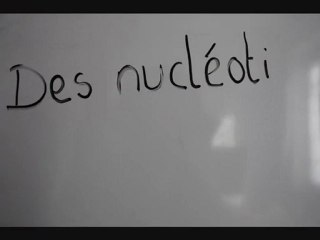 Des nucléoti